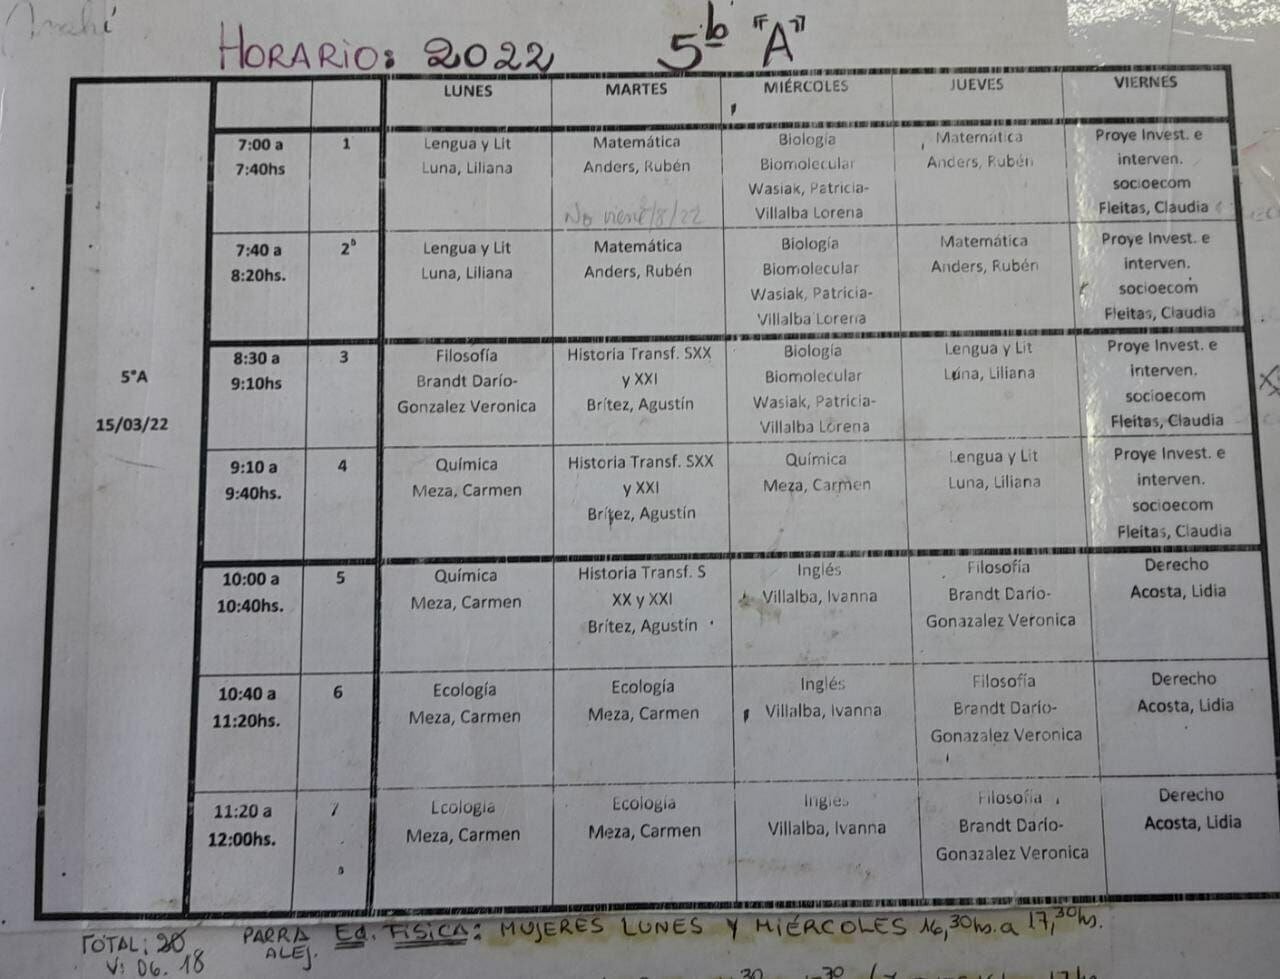 Anahí
HORARIO: 2022 5b "A"
LUNES MARTES MIÉRCOLES JUEVES VIERNES
5°A
15/03/22
7:00 a 7:40hs
1
Lengua y Lit
Luna, Liliana
Matemática
Anders, Rubén
No viene /8/22
Biología
Biomolecular
Wasiak, Patricia-
Villalba Lorena
Matemática
Anders, Rubén
Proye Invest. e
interven.
socioecom
Fleitas, Claudia
7:40 a
8:20hs.
2
Lengua y Lit
Luna, Liliana
Matemática
Anders, Rubén
Biología
Biomolecular
Wasiak, Patricia-
Villalba Lorena
Matemática
Anders, Rubén
Proye Invest. e
interven.
socioecom
Fleitas, Claudia
8:30 a
9:10hs
3
Filosofía
Brandt Darío-
Gonzalez Veronica
Historia Transf. SXX
y XXI
Brítez, Agustín
Biología
Biomolecular
Wasiak, Patricia-
Villalba Lorena
Lengua y Lit
Luna, Liliana
Proye Invest. e
interven.
socioecom
Fleitas, Claudia
9:10 a
9:40hs.
4
Química
Meza, Carmen
Historia Transf. SXX
y XXI
Brítez, Agustín
Química
Meza, Carmen
Lengua y Lit
Luna, Liliana
Proye Invest. e
interven.
socioecom
Fleitas, Claudia
10:00 a
10:40hs.
5
Química
Meza, Carmen
Historia Transf. S
XX y XXI
Brítez, Agustín
Inglés
Villalba, Ivanna
Filosofía
Brandt Darío-
Gonazalez Veronica
Derecho
Acosta, Lidia
10:40 a
11:20hs.
6
Ecología
Meza, Carmen
Ecología
Meza, Carmen
Inglés
Villalba, Ivanna
Filosofía
Brandt Darío-
Gonazalez Veronica
Derecho
Acosta, Lidia
11:20 a
12:00hs.
7
Ecología
Meza, Carmen
Ecología
Meza, Carmen
Inglés
Villalba, Ivanna
Filosofía
Brandt Darío-
Gonazalez Veronica
Derecho
Acosta, Lidia
PARRA ALEJ. Ed. FÍSICA: MUJERES LUNES Y MIÉRCOLES 16,30hs. a 17,30hs.
TOTAL: 20
V: 06. 18